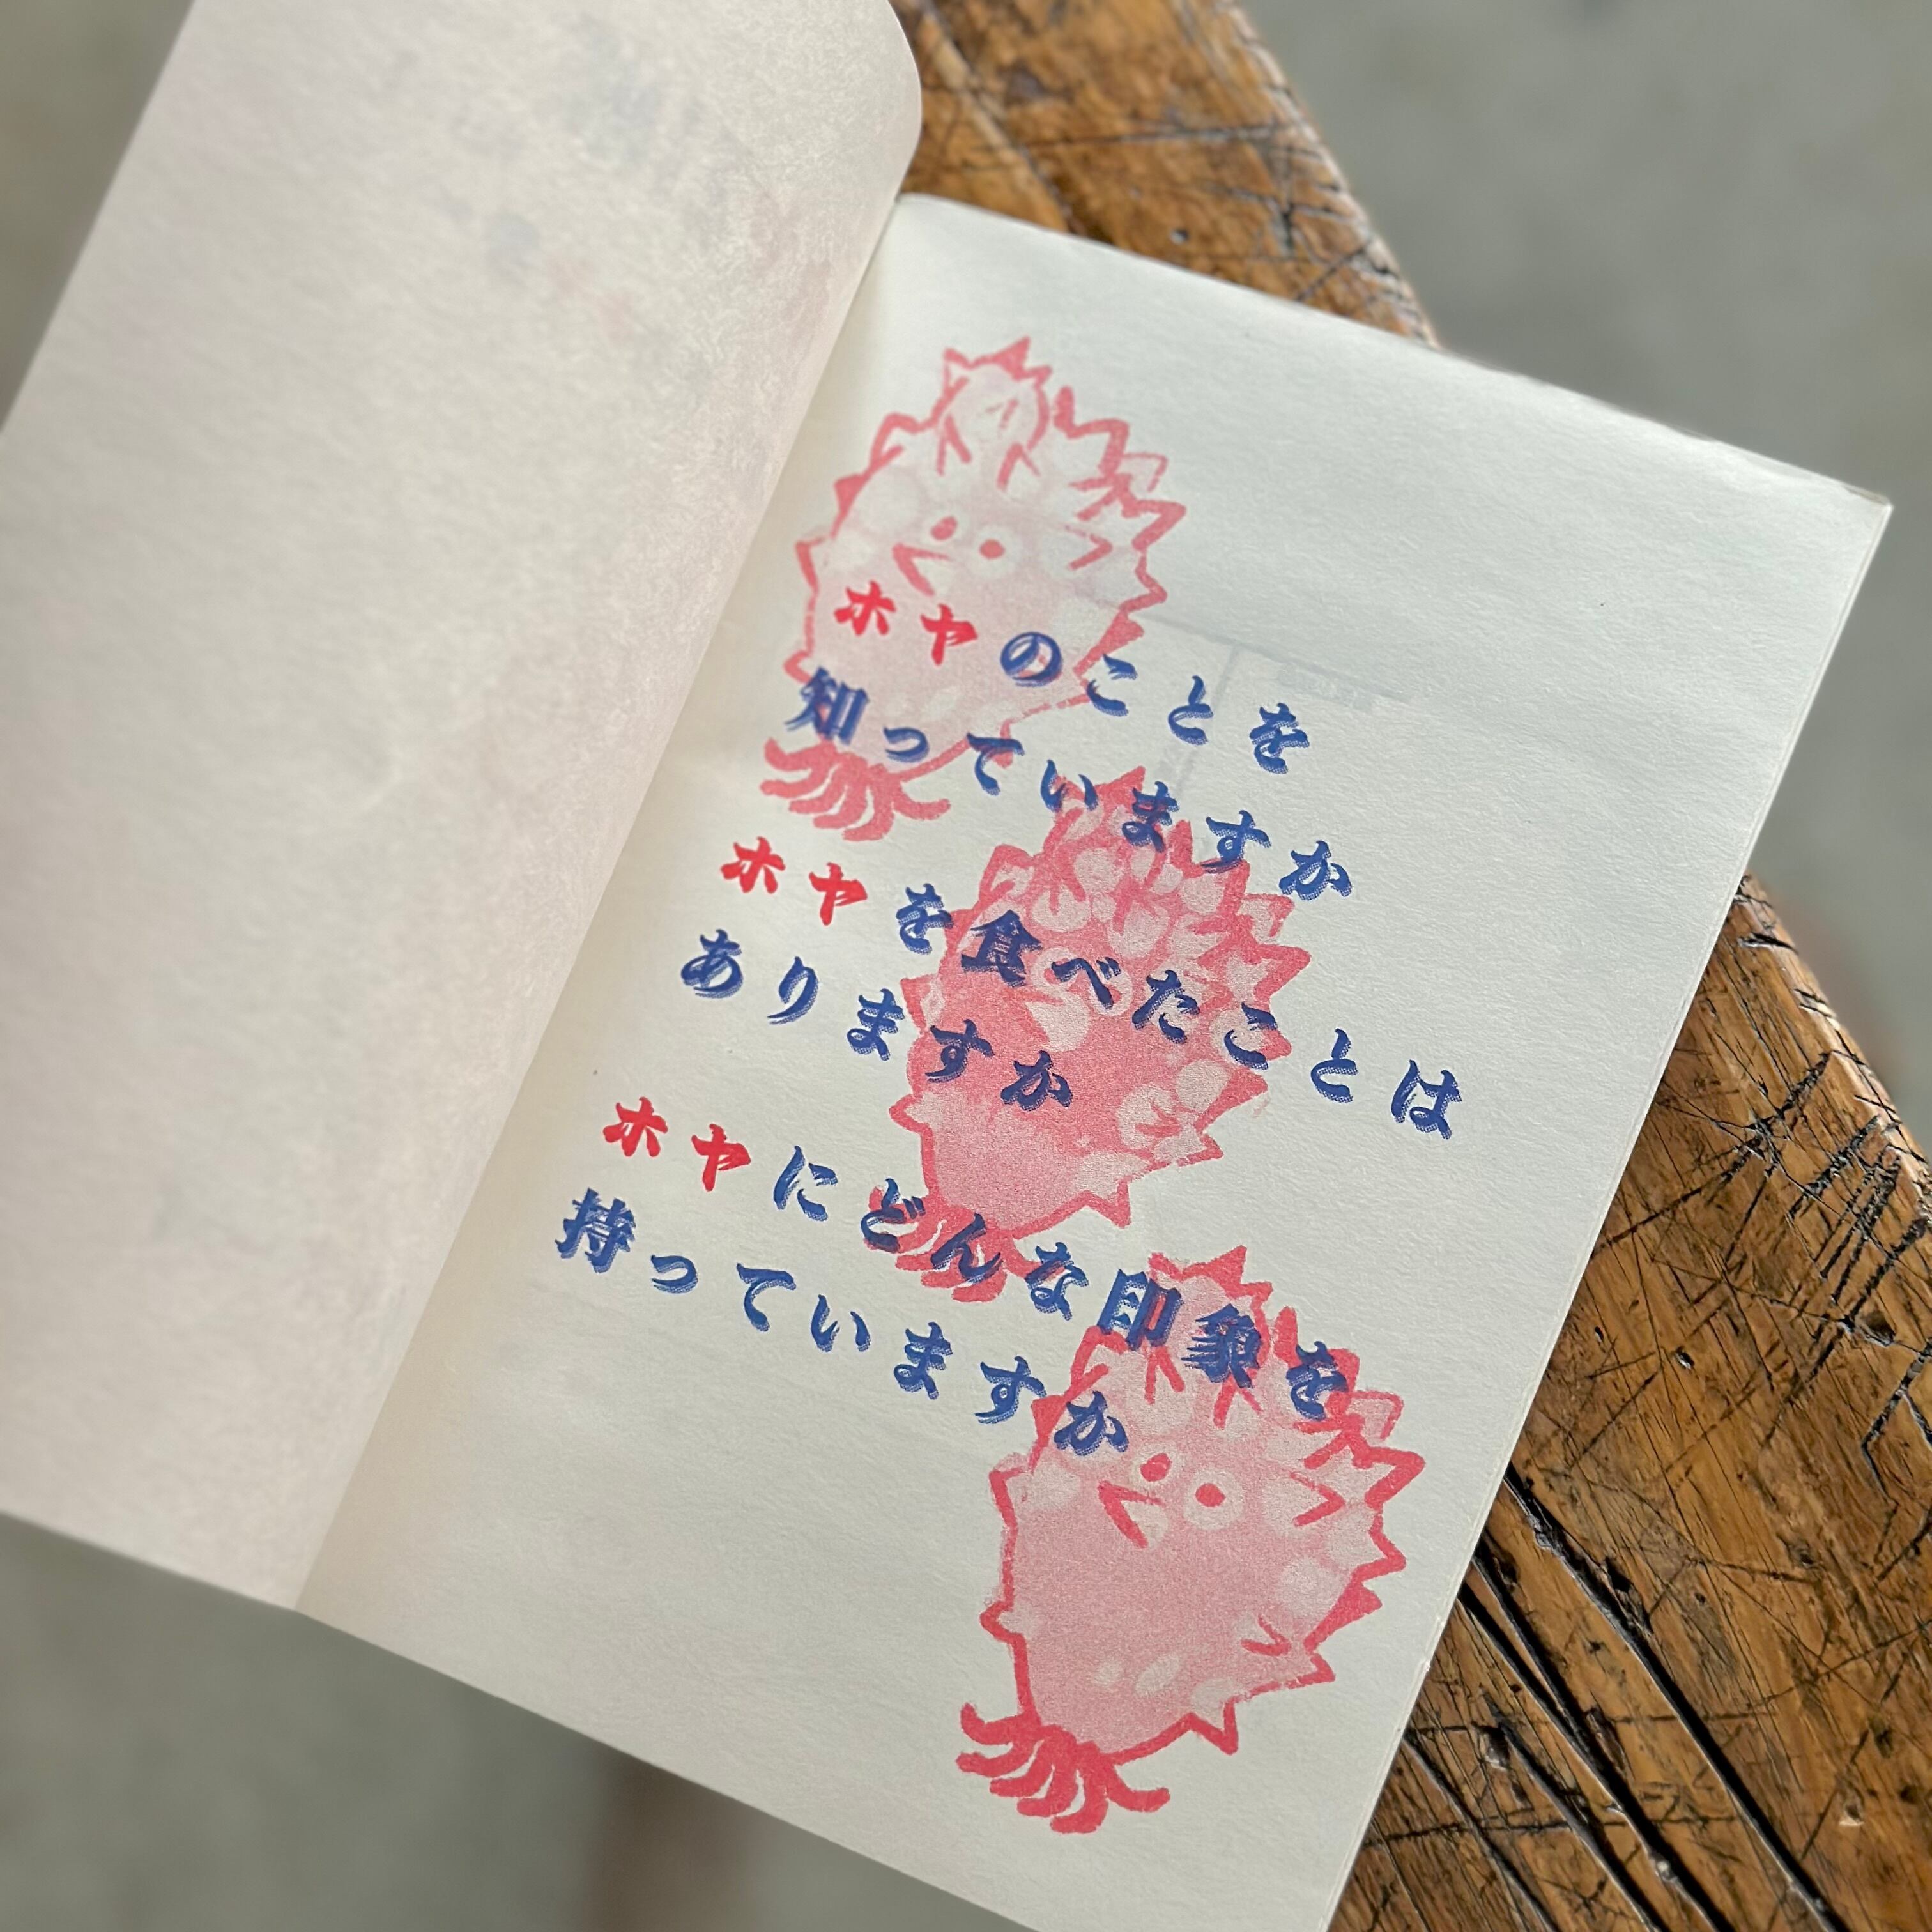 ホヤのことを
知っていますか
ホヤを食べたことは
ありますか
ホヤにどんな印象を
持っていますか